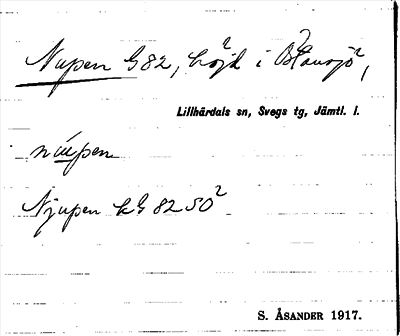 Nupen G 82, höjd i Blåusjö,
Lillhärdals sn, Svegs tg, Jämtl. l.
nupen
Njupen kG 82 SO
S. ÅSANDER 1917.